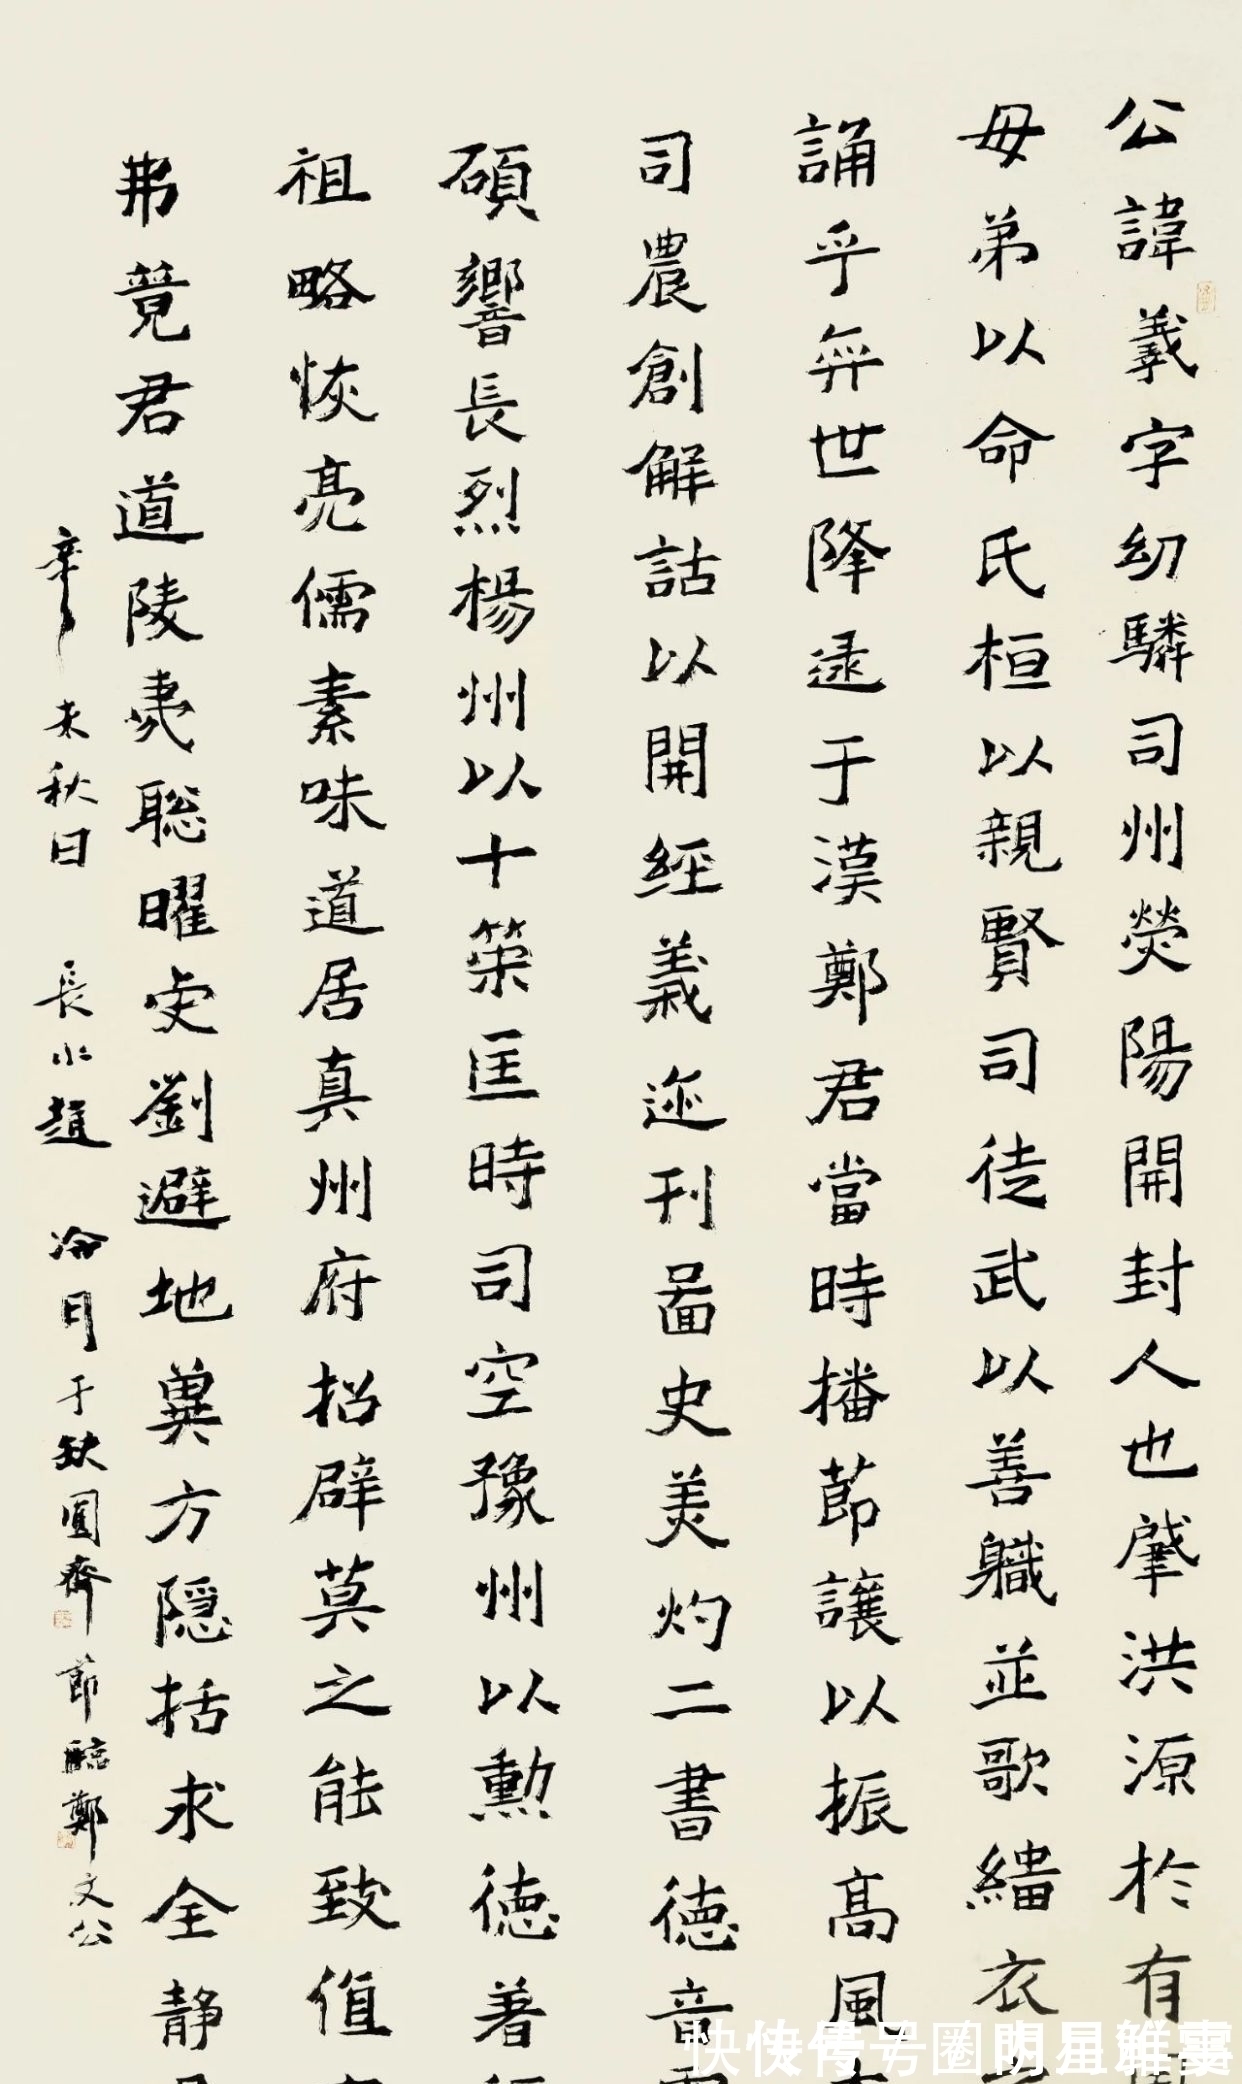 公諱羲字幼驎司州熒陽開封人也肇洪源於有
母弟以命氏桓以親賢司徒武以善軄並歌緇衣
誦乎奕世降逮于漢鄭君當時播莭讓以振髙風
司農創解詁以開經義迹刊圖史美灼二書德音
碩響長烈楊州以十策匡時司空豫州以勲德著
祖略恢亮儒素味道居真州府招辟莫之能致值
弗竟君道陵夷聡曜虔劉避地兾方隱括求全静
辛未秋日 長水趙 冷月于缺圓齋
節臨鄭文公
快传号 圈内明星鲜事